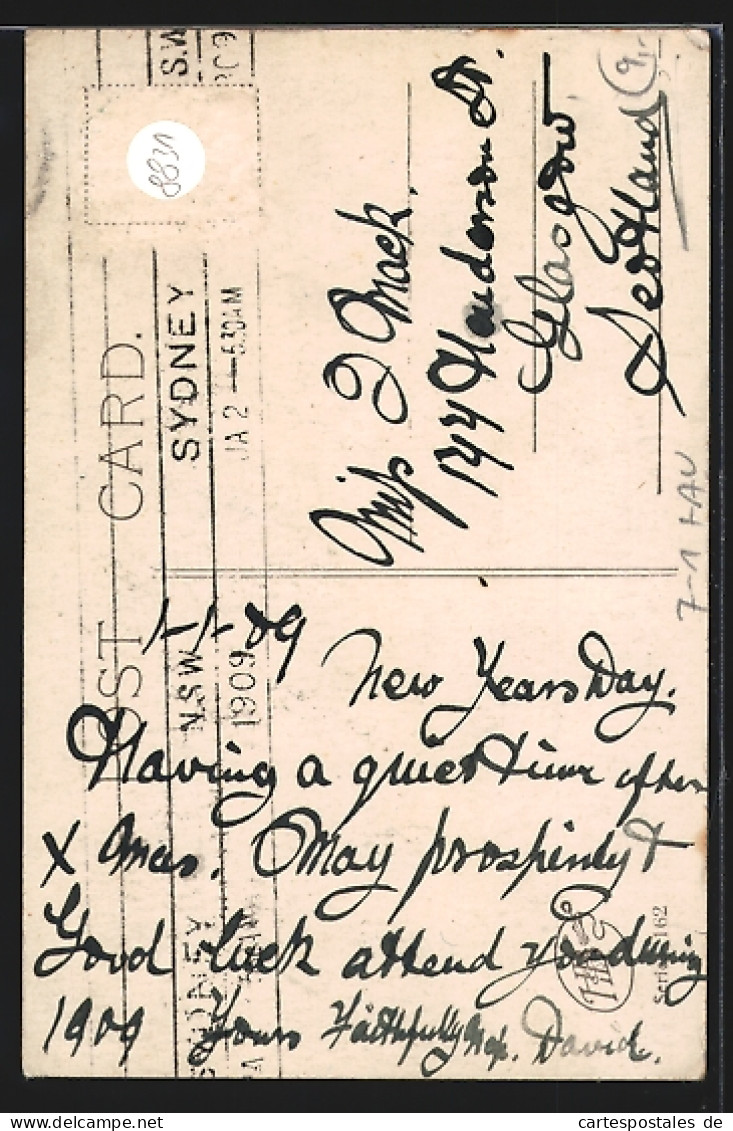 POST CARD.
SYDNEY
JA 2 — 5 30 AM
N.S.W.
1909
8831
Miss D Mack.
144 Henderson St.
Glasgow
Scotland
9,-
1-1-09
New Years Day.
Having a quiet time after
X Mas. May prosperity &
Good luck attend you during
1909 Yours Faithfully
David.
SYDNEY
162
cartespostales de